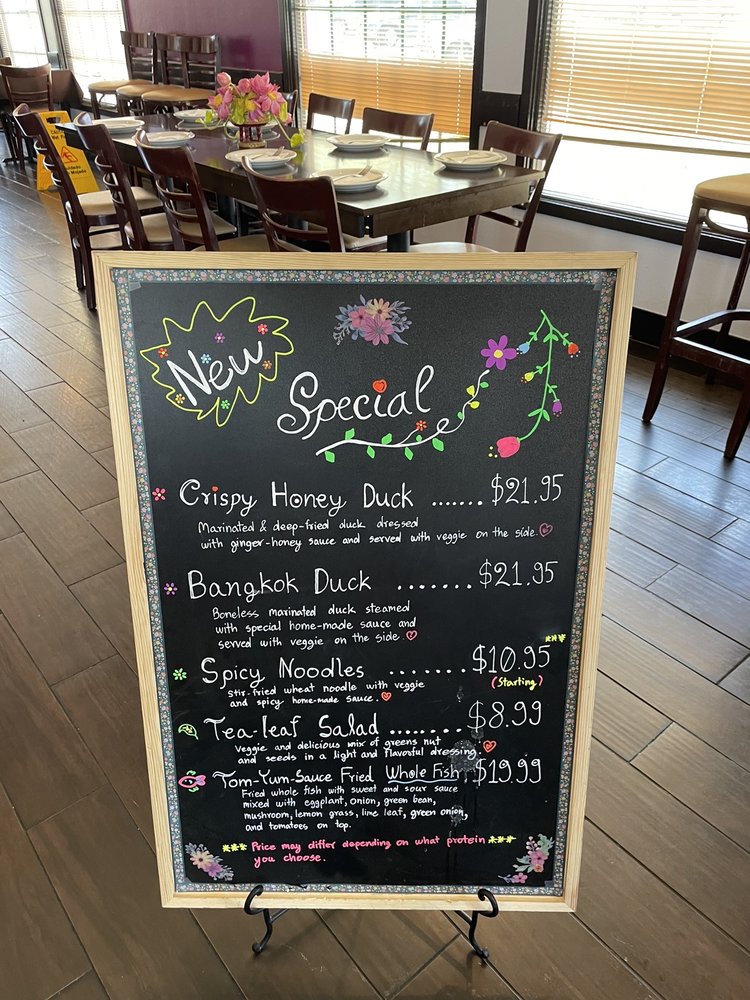 New
Special
Crispy Honey Duck ....... $21.95
Marinated & deep-fried duck dressed
with ginger-honey sauce and served with veggie on the side.
Bangkok Duck ....... $21.95
Boneless marinated duck steamed
with special home-made sauce and
served with veggie on the side.
***
Spicy Noodles ....... $10.95
(Starting)
Stir-fried wheat noodle with veggie
and spicy home-made sauce.
Tea-leaf Salad ........ $8.99
Veggie and delicious mix of greens nut
and seeds in a light and flavorful dressing.
Tom-Yum-Sauce Fried Whole Fish $19.99
Fried whole fish with sweet and sour sauce
mixed with eggplant, onion, green bean,
mushroom, lemon grass, lime leaf, green onion,
and tomatoes on top.
*** Price may differ depending on what protein ***
you choose.